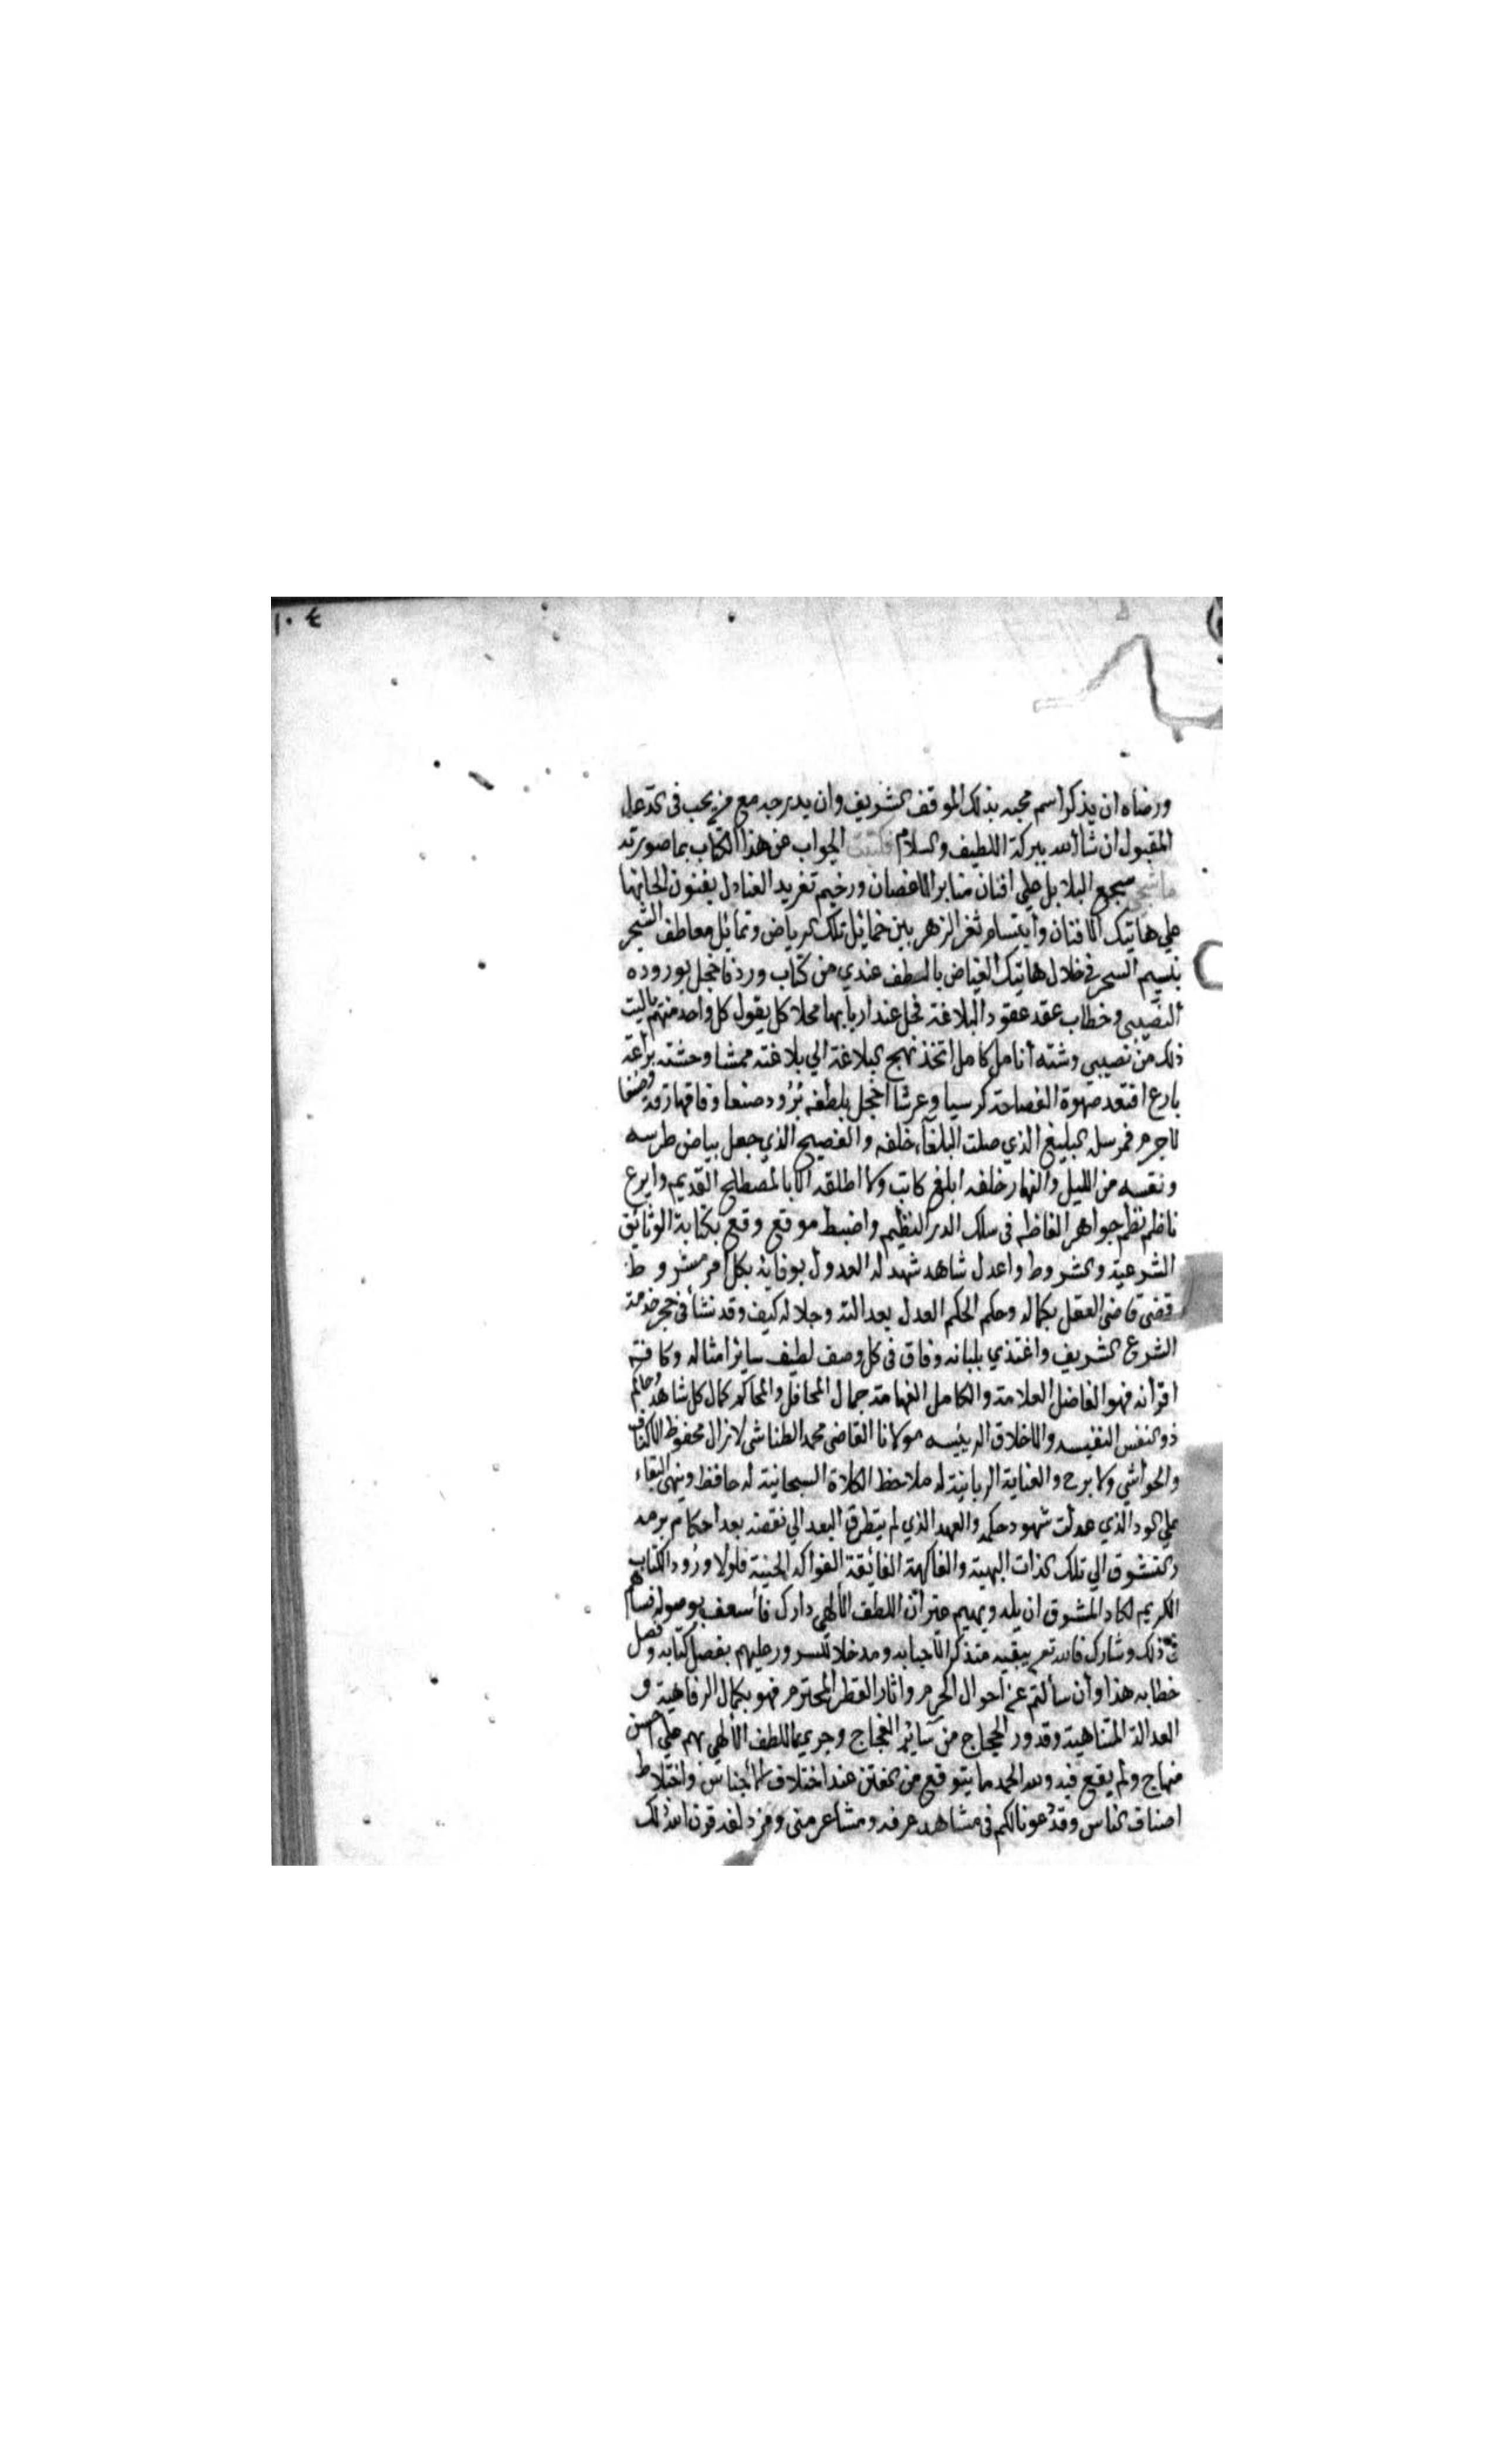 ١٠٤
ورضاه ان يذكر اسم محبه بذلك الموقف الشريف وان يدرجه مع من يحب في الدعاء
المقبول ان شا الله ببركة اللطيف والسلام فكتبت الجواب عن هذا الكتاب بما صورته
ما سجع البلابل علي افنان منابر الاغصان ورخيم تغريد العنادل بفنون الحانها
علي هاتيك الافنان وابتسام ثغر الزهر بين خمائل تلك الرياض وتمائل معاطف الشجر
بنسيم السحر في خلال هاتيك الغياض بالطف عندي من كتاب ورد فاخجل بوروده
النصيبي وخطاب عقد عقود البلاغة فحل عند اربابها محلا كل يقول كل واحد منهم ياليت
ذلك من نصيبي وشته أنامل كامل اتخذ نهج البلاغة الي بلاغته ممشا وحشته براعة
بارع اقتعد صهوة الفصاحة كرسيا وعرشا اخجل بلطفه برُود صنعا وفاقها رقة وصنعا
لا جرم فمرسله البليغ الذي صلت البلغاء خلفه والفصيح الذي جعل بياض طرسه
ونقسه من الليل والنهار خلفه ابلغ كاتب ولا اطلقه الا بالمصطلح القديم وابرع
ناظم نظم جواهر الفاظه في سلك الدر النظيم واضبط موقع وقع بكتابة الوثائق
الشرعية والشروط واعدل شاهد شهد له العدول بوفائه بكل امر مشروط
قضى قاضي العقل بكماله وحكم الحكم العدل بعدالته وجلاله كيف وقد نشأ في حجر خدمة
الشرع الشريف واغتذي بلبانه وفاق في كل وصف لطيف سائر امثاله وكافة
اقرانه فهو الفاضل العلامة والكامل الفهامة جمال المحافل والمحاكم كمال كل شاهد وحاكم
ذو النفس النفيسه والاخلاق الرئيسه مولانا القاضي محمد الطناشي لازال محفوظ الاكناف
والحواشي ولا برح والعناية الربانية له ملاحظ الكلاة السبحانية له حافظ وينهي البقاء
علي الود الذي عدلت شهود حكمه والعهد الذي لم يتطرق البعد الي نقضه بعد احكام برمه
والتشوق الي تلك الذات البهية والفاكهة الفائقة الفواكه الجنية فلولا ورود الكتاب
الكريم لكاد المشوق ان يله ويهيم غير ان اللطف الالهي دارك فأسعف بوصوله فساهم
في ذلك وشارك فالله تع يبقيه متذكرا لاحبابه ومدخلا للسرور عليهم بفصل كتابه وفصل
خطابه هذا وان سألتم عن احوال الحرم واثار القطر المحترم فهو بكمال الرفاهية و
العدالة المتناهية وقد ورد الحجاج من سائر الفجاج وجري اللطف الالهي بهم علي احسن
منهاج ولم يقع فيه ولله الحمد ما يتوقع من الفتن عند اختلاف الاجناس واختلاط
اصناف الناس وقد دعونا لكم في مشاهد عرفه ومشاعر منى ومزدلفه قرن الله ذلك